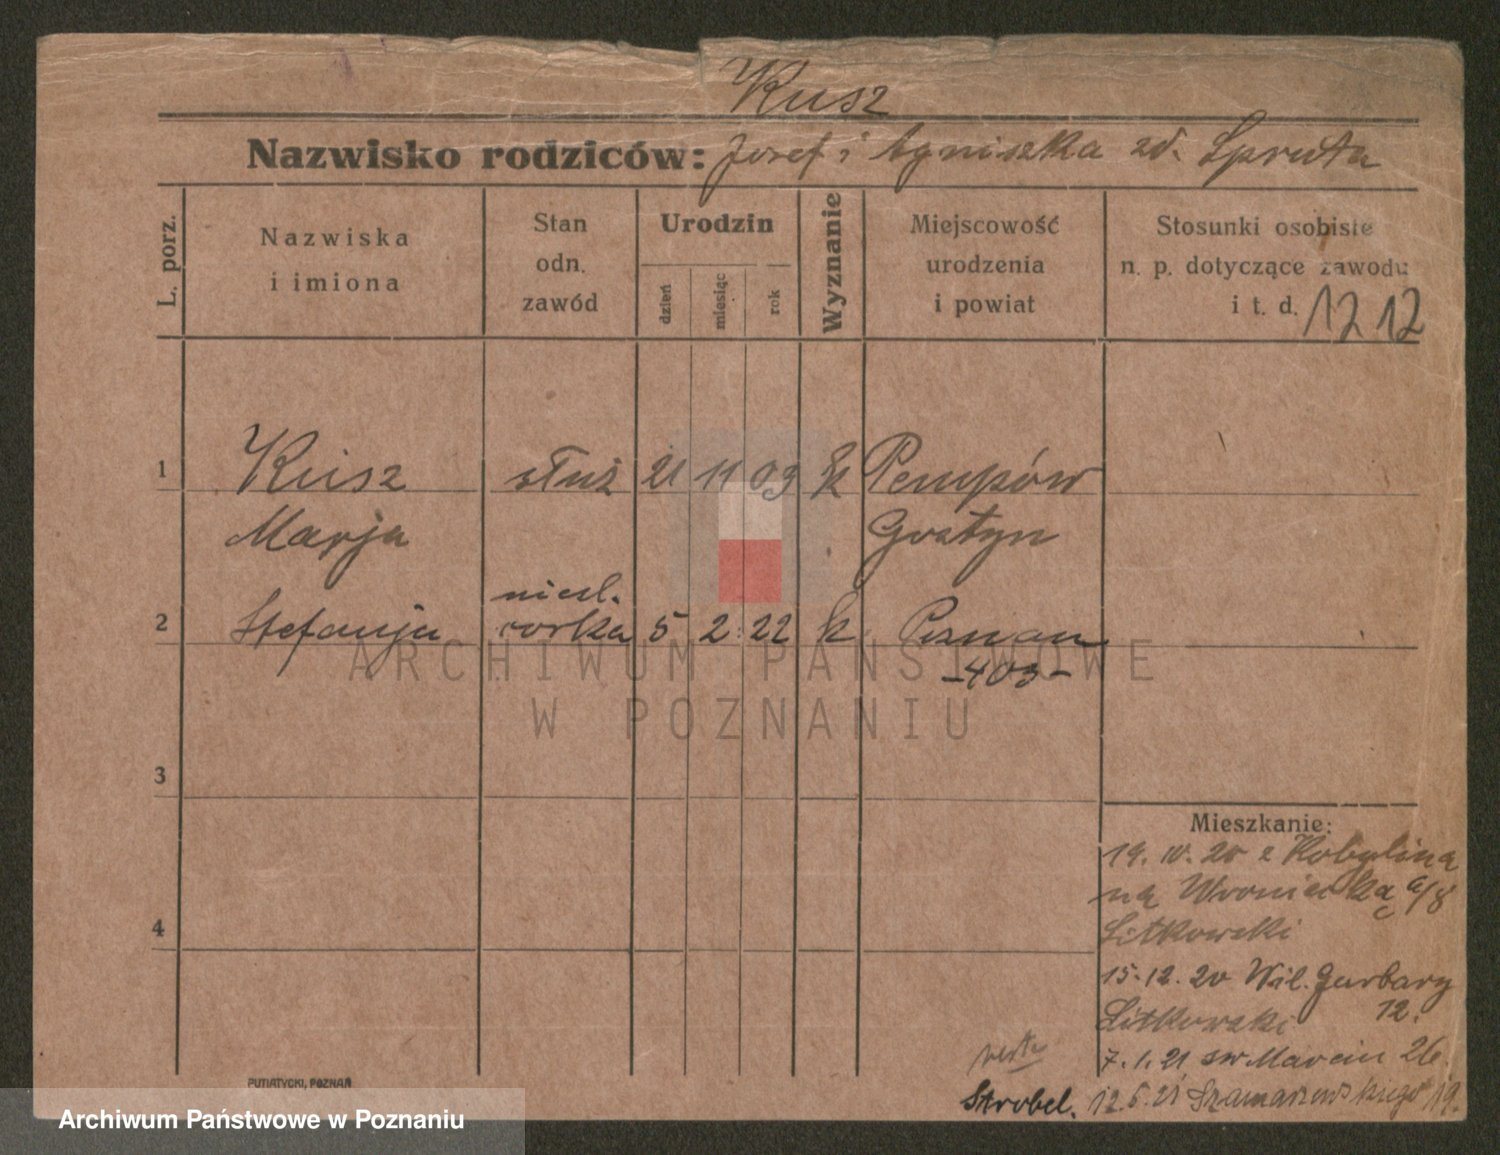 Kusz
Nazwisko rodziców: Josef i Agniszka zd. Spruta
L. porz.
Nazwiska
i imiona
Stan
odn.
zawód
Urodzin
dzień
miesiąc
rok
Wyznanie
Miejscowość
urodzenia
i powiat
Stosunki osobiste
n. p. dotyczące zawodu
i t. d. 1212
1 Kusz służ 21 11 03 k Pempów
Marja Gostyn
nieśl.
2 Stefanja corka 5 2 22 k. Poznan
-403-
ARCHIWUM PAŃSTWOWE
W POZNANIU
3
4
Mieszkanie:
19. IV. 20 z Kobylina
na Wroniecką 6/8
Litkowski
15.12.20 Wil. Garbary
Litkowski 12.
7.1.21 sw Marcin 26.
Strobel. 12.6.21 Szamarzewskiego 19.
PUTIATYCKI, POZNAŃ
Archiwum Państwowe w Poznaniu